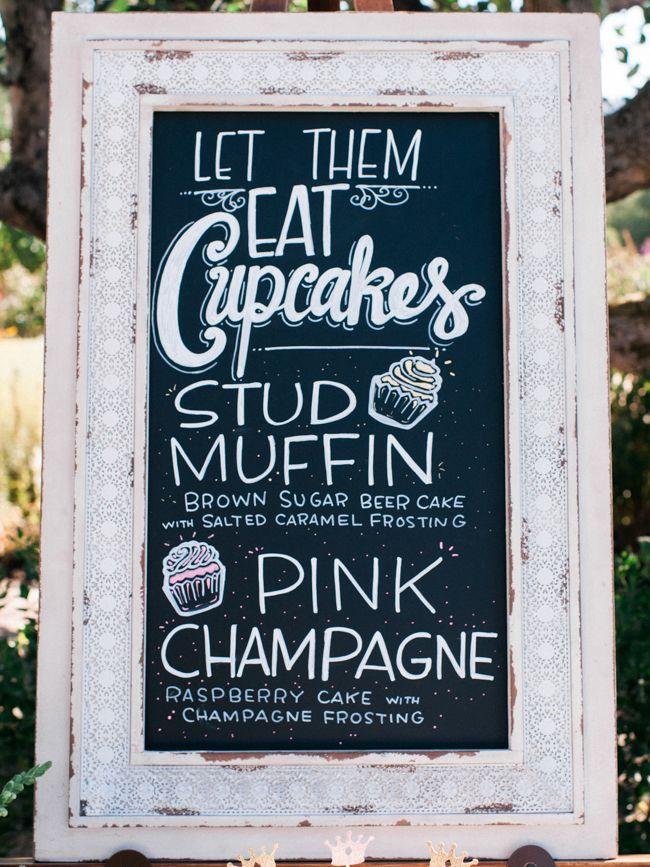 LET THEM
EAT
Cupcakes
STUD
MUFFIN
BROWN SUGAR BEER CAKE
WITH SALTED CARAMEL FROSTING
PINK
CHAMPAGNE
RASPBERRY CAKE WITH
CHAMPAGNE FROSTING